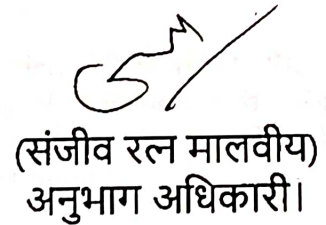 (संजीव रत्न मालवीय)
अनुभाग अधिकारी।